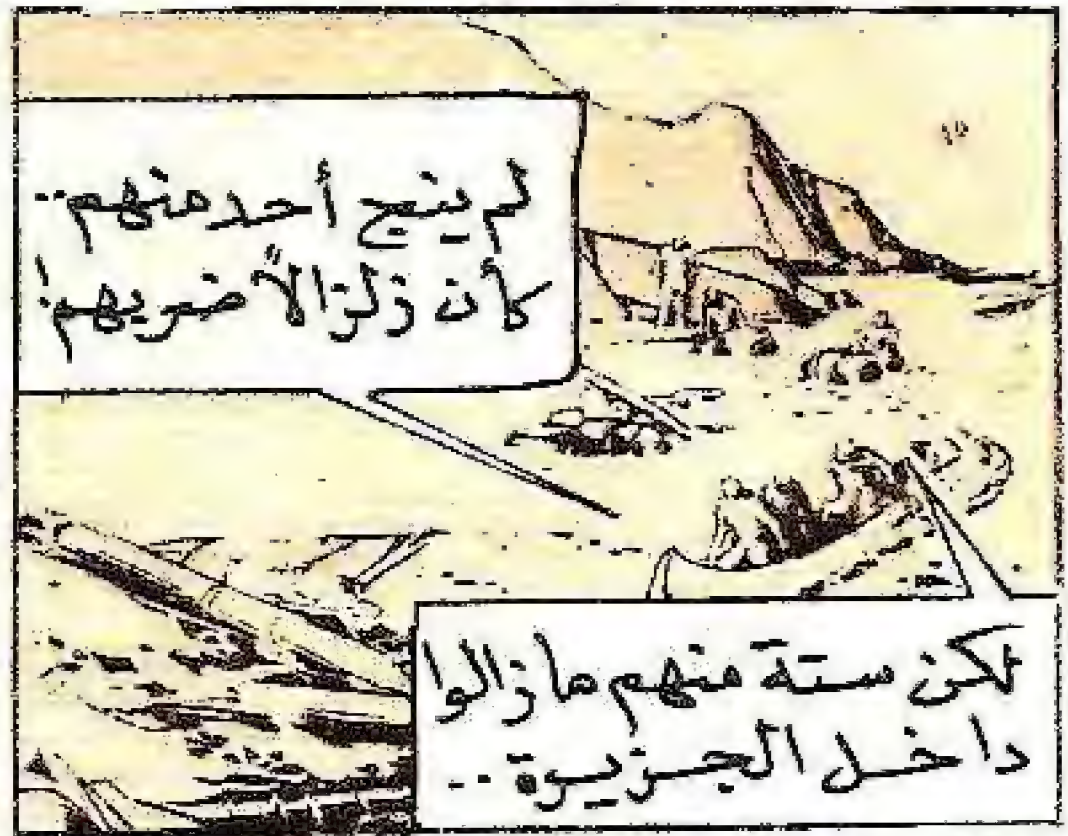 لم ينج أحد منهم..
كأن زلزالاً ضربهم!
لكن ستة منهم ما زالوا
داخل الجزيرة..